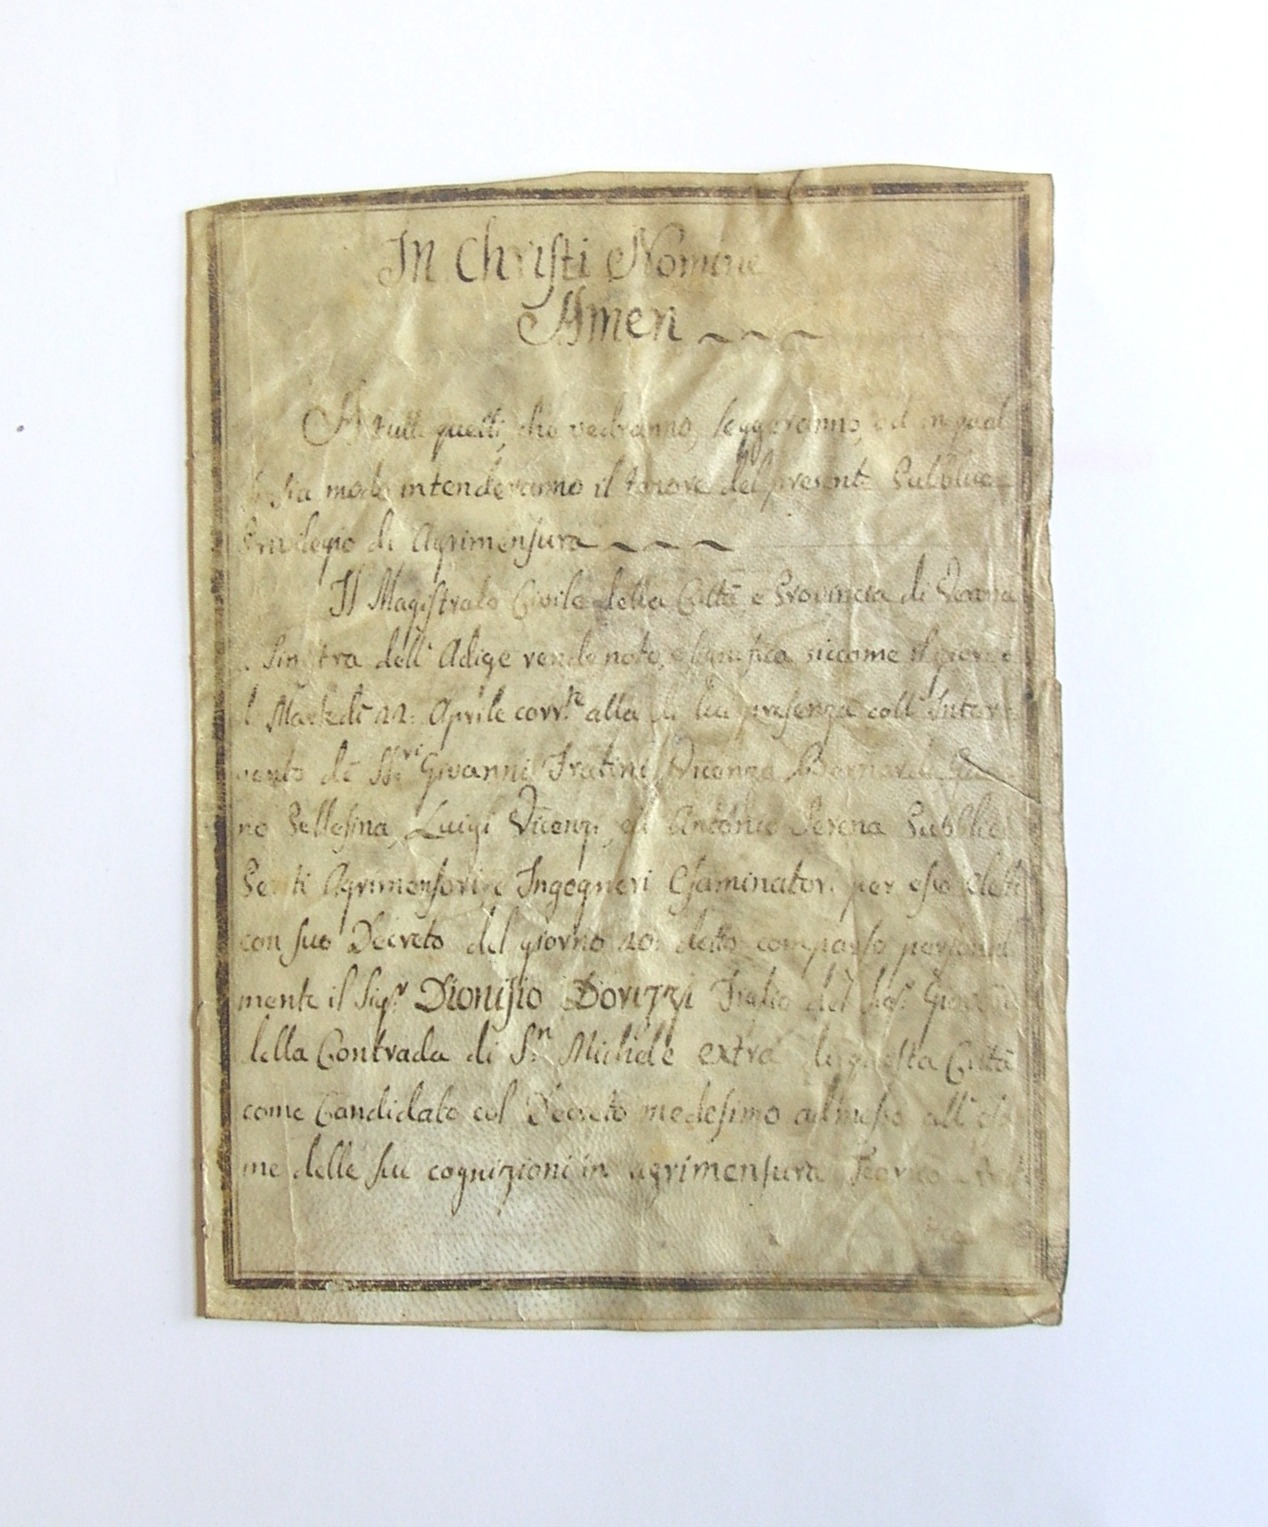 In Christi Nomine
Amen ~ ~ ~
A tutti quelli, che vedranno, leggeranno, ed in qual
sia modo intenderanno il tenore del presente Pubblico
Privilegio di Agrimensura ~ ~ ~
Il Magistrato Civile della Città, e Provincia di Verona
Sinistra dell' Adige rende noto, e significa, siccome il giorno
di Martedì 22. Aprile corr.te alla di lui presenza coll' Inter
vento di SS.ri Giovanni Fratini, Vicenzo Bernardi,
no Pellesina, Luigi Vicenzi, ed Antonio Perena Pubblici
Periti Agrimensori, e Ingegneri Esaminatori per esso eletti
con suo Decreto del giorno 20. detto comparso personal
mente il Sig.r Dionisio Dovizzi Figlio del
della Contrada di S.n Michele extra di questa Città
come Candidato col Decreto medesimo admesso all' esa
me delle sue cognizioni in agrimensura Teorico